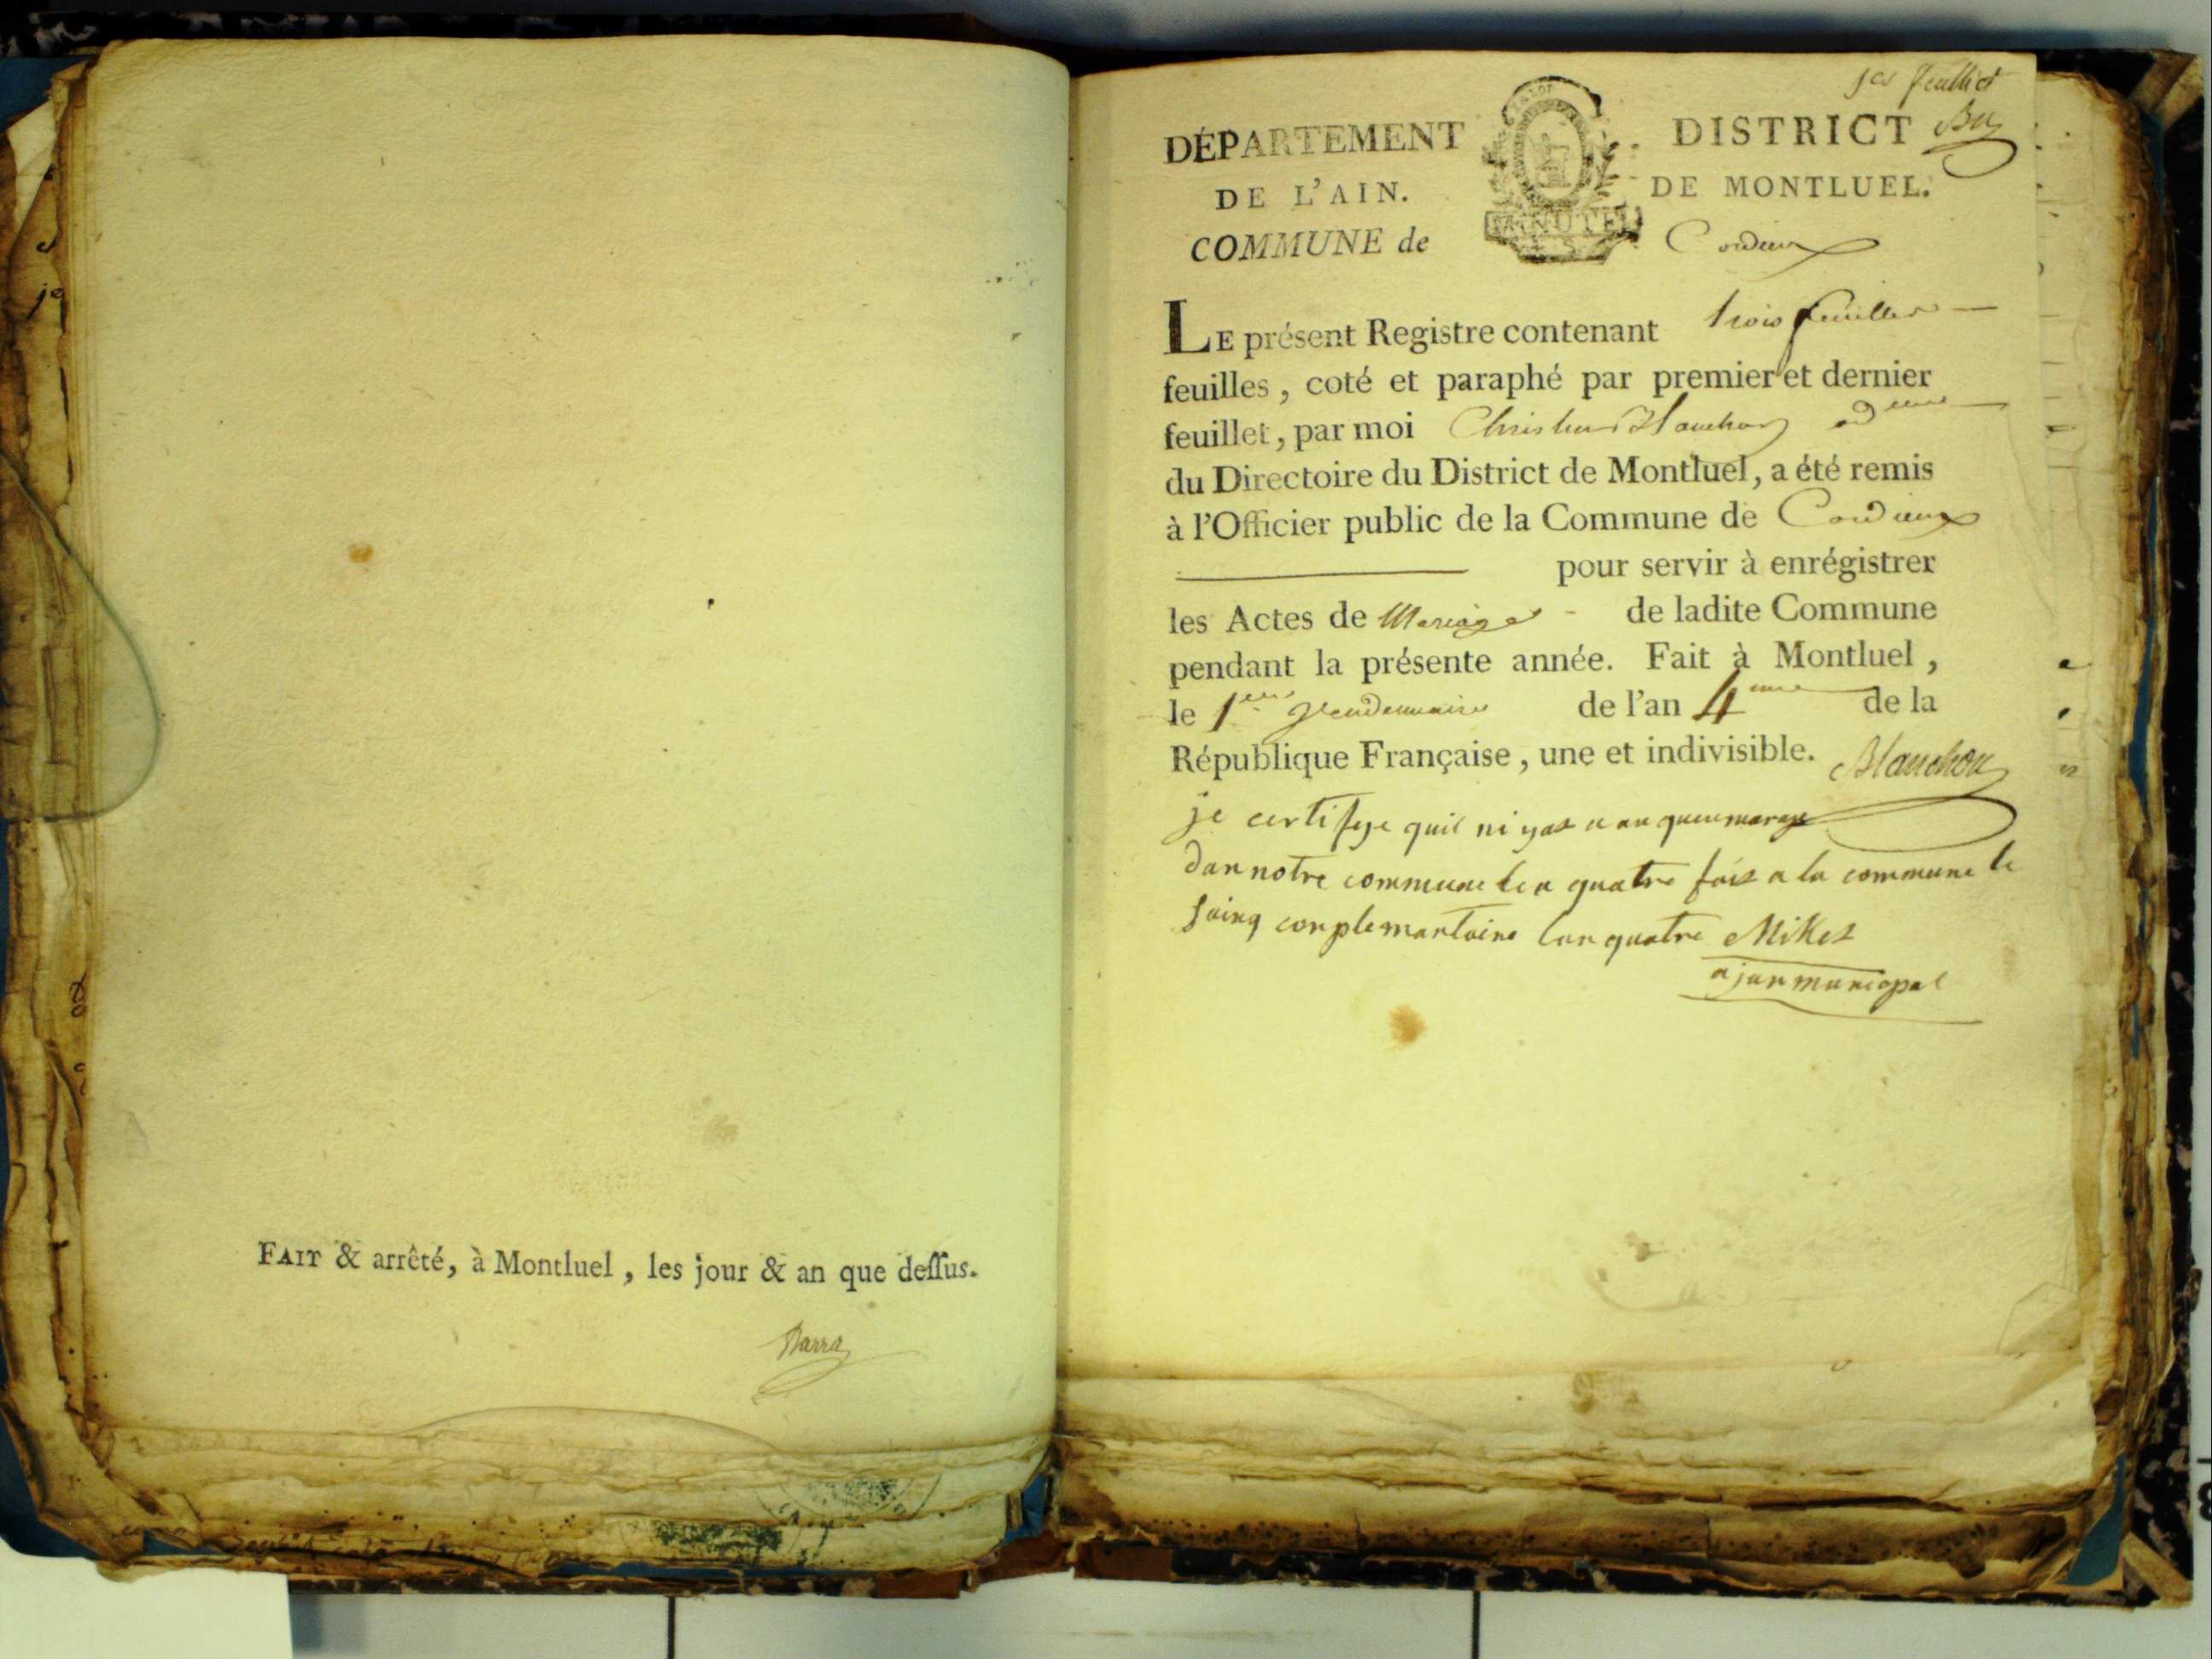 FAIT & arrêté, à Montluel, les jour & an que deſſus.
Barra
1er feuillet
DÉPARTEMENT DISTRICT
DE L'AIN. DE MONTLUEL.
MINUTE
COMMUNE de Cordieux
LE présent Registre contenant trois feuilles
feuilles, coté et paraphé par premier et dernier
feuillet, par moi Blanchon
du Directoire du District de Montluel, a été remis
à l'Officier public de la Commune de Cordieux
pour servir à enrégistrer
les Actes de Mariage de ladite Commune
pendant la présente année. Fait à Montluel,
le 1er Vendemiaire de l'an 4eme de la
République Française, une et indivisible. Blanchon
je certifye quil ni yat u auqueu marage
dan notre commune quatre fait a la commune le
sainq conplemantaire lan quatre Miket
ajan municipal